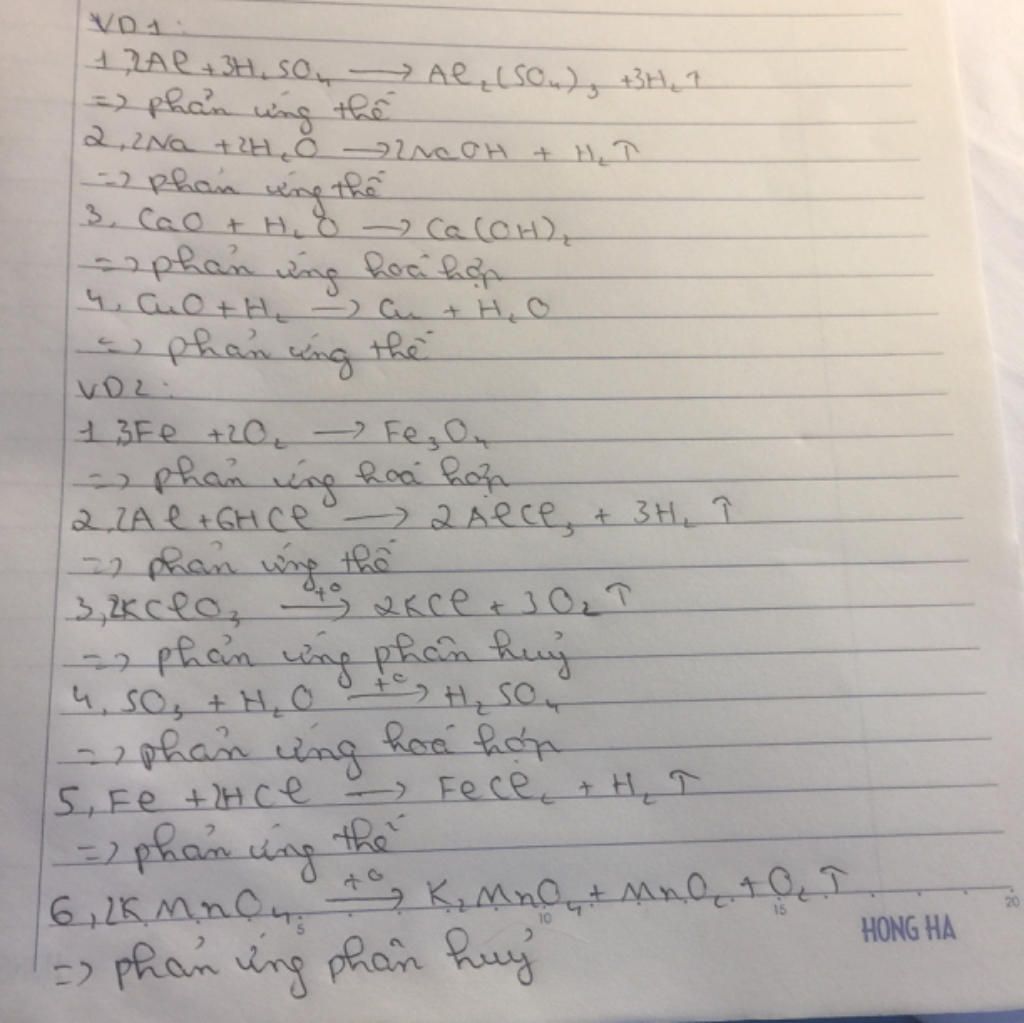 VD1:
1, 2Al + 3H₂SO₄ → Al₂(SO₄)₃ + 3H₂↑
=> phản ứng thế
2, 2Na + 2H₂O → 2NaOH + H₂↑
=> phản ứng thế
3, CaO + H₂O → Ca(OH)₂
=> phản ứng hoá hợp
4, CuO + H₂ → Cu + H₂O
=> phản ứng thế
VD2:
1, 3Fe + 2O₂ → Fe₃O₄
=> phản ứng hoá hợp
2, 2Al + 6HCl → 2AlCl₃ + 3H₂↑
=> phản ứng thế
3, 2KClO₃ —t°→ 2KCl + 3O₂↑
=> phản ứng phân huỷ
4, SO₃ + H₂O —t°→ H₂SO₄
=> phản ứng hoá hợp
5, Fe + 2HCl → FeCl₂ + H₂↑
=> phản ứng thế
6, 2KMnO₄ —t°→ K₂MnO₄ + MnO₂ + O₂↑
5 10 15 20
HONG HA
=> phản ứng phân huỷ